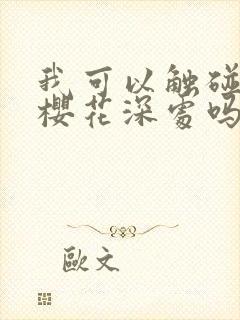 我可以触碰
樱花深处吗
欧文